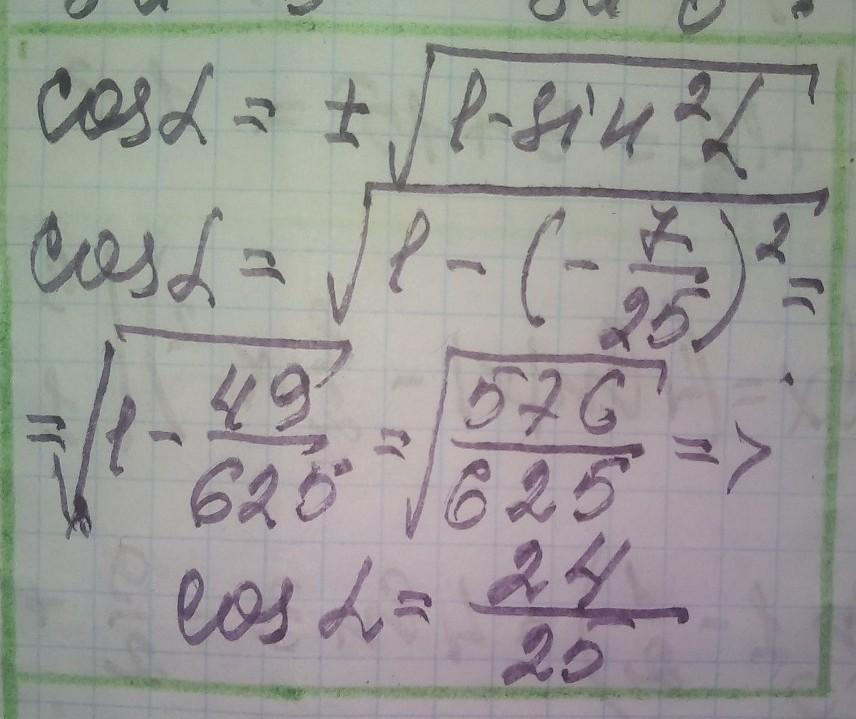 cos α = ± √(1 - sin²α)
cos α = √(1 - (- 7/25)²) =
= √(1 - 49/625) = √(576/625) =>
cos α = 24/25